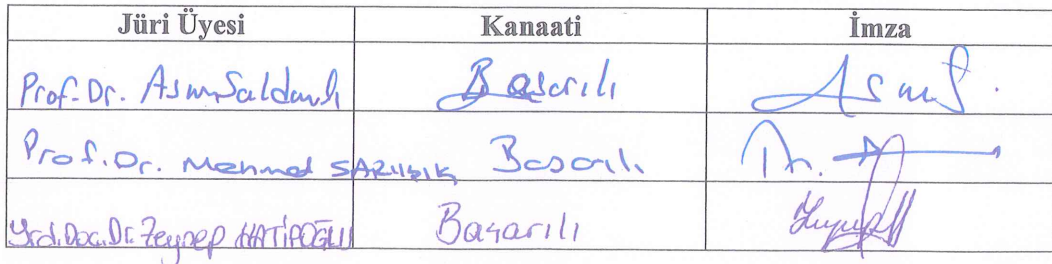 Jüri Üyesi Kanaati İmza
Prof. Dr. Asım Saldamlı Başarılı Asım S.
Prof. Dr. Mehmed SARIIŞIK Başarılı
Yrd. Doc. Dr. Zeynep HATİPOĞLU Başarılı Zeynep